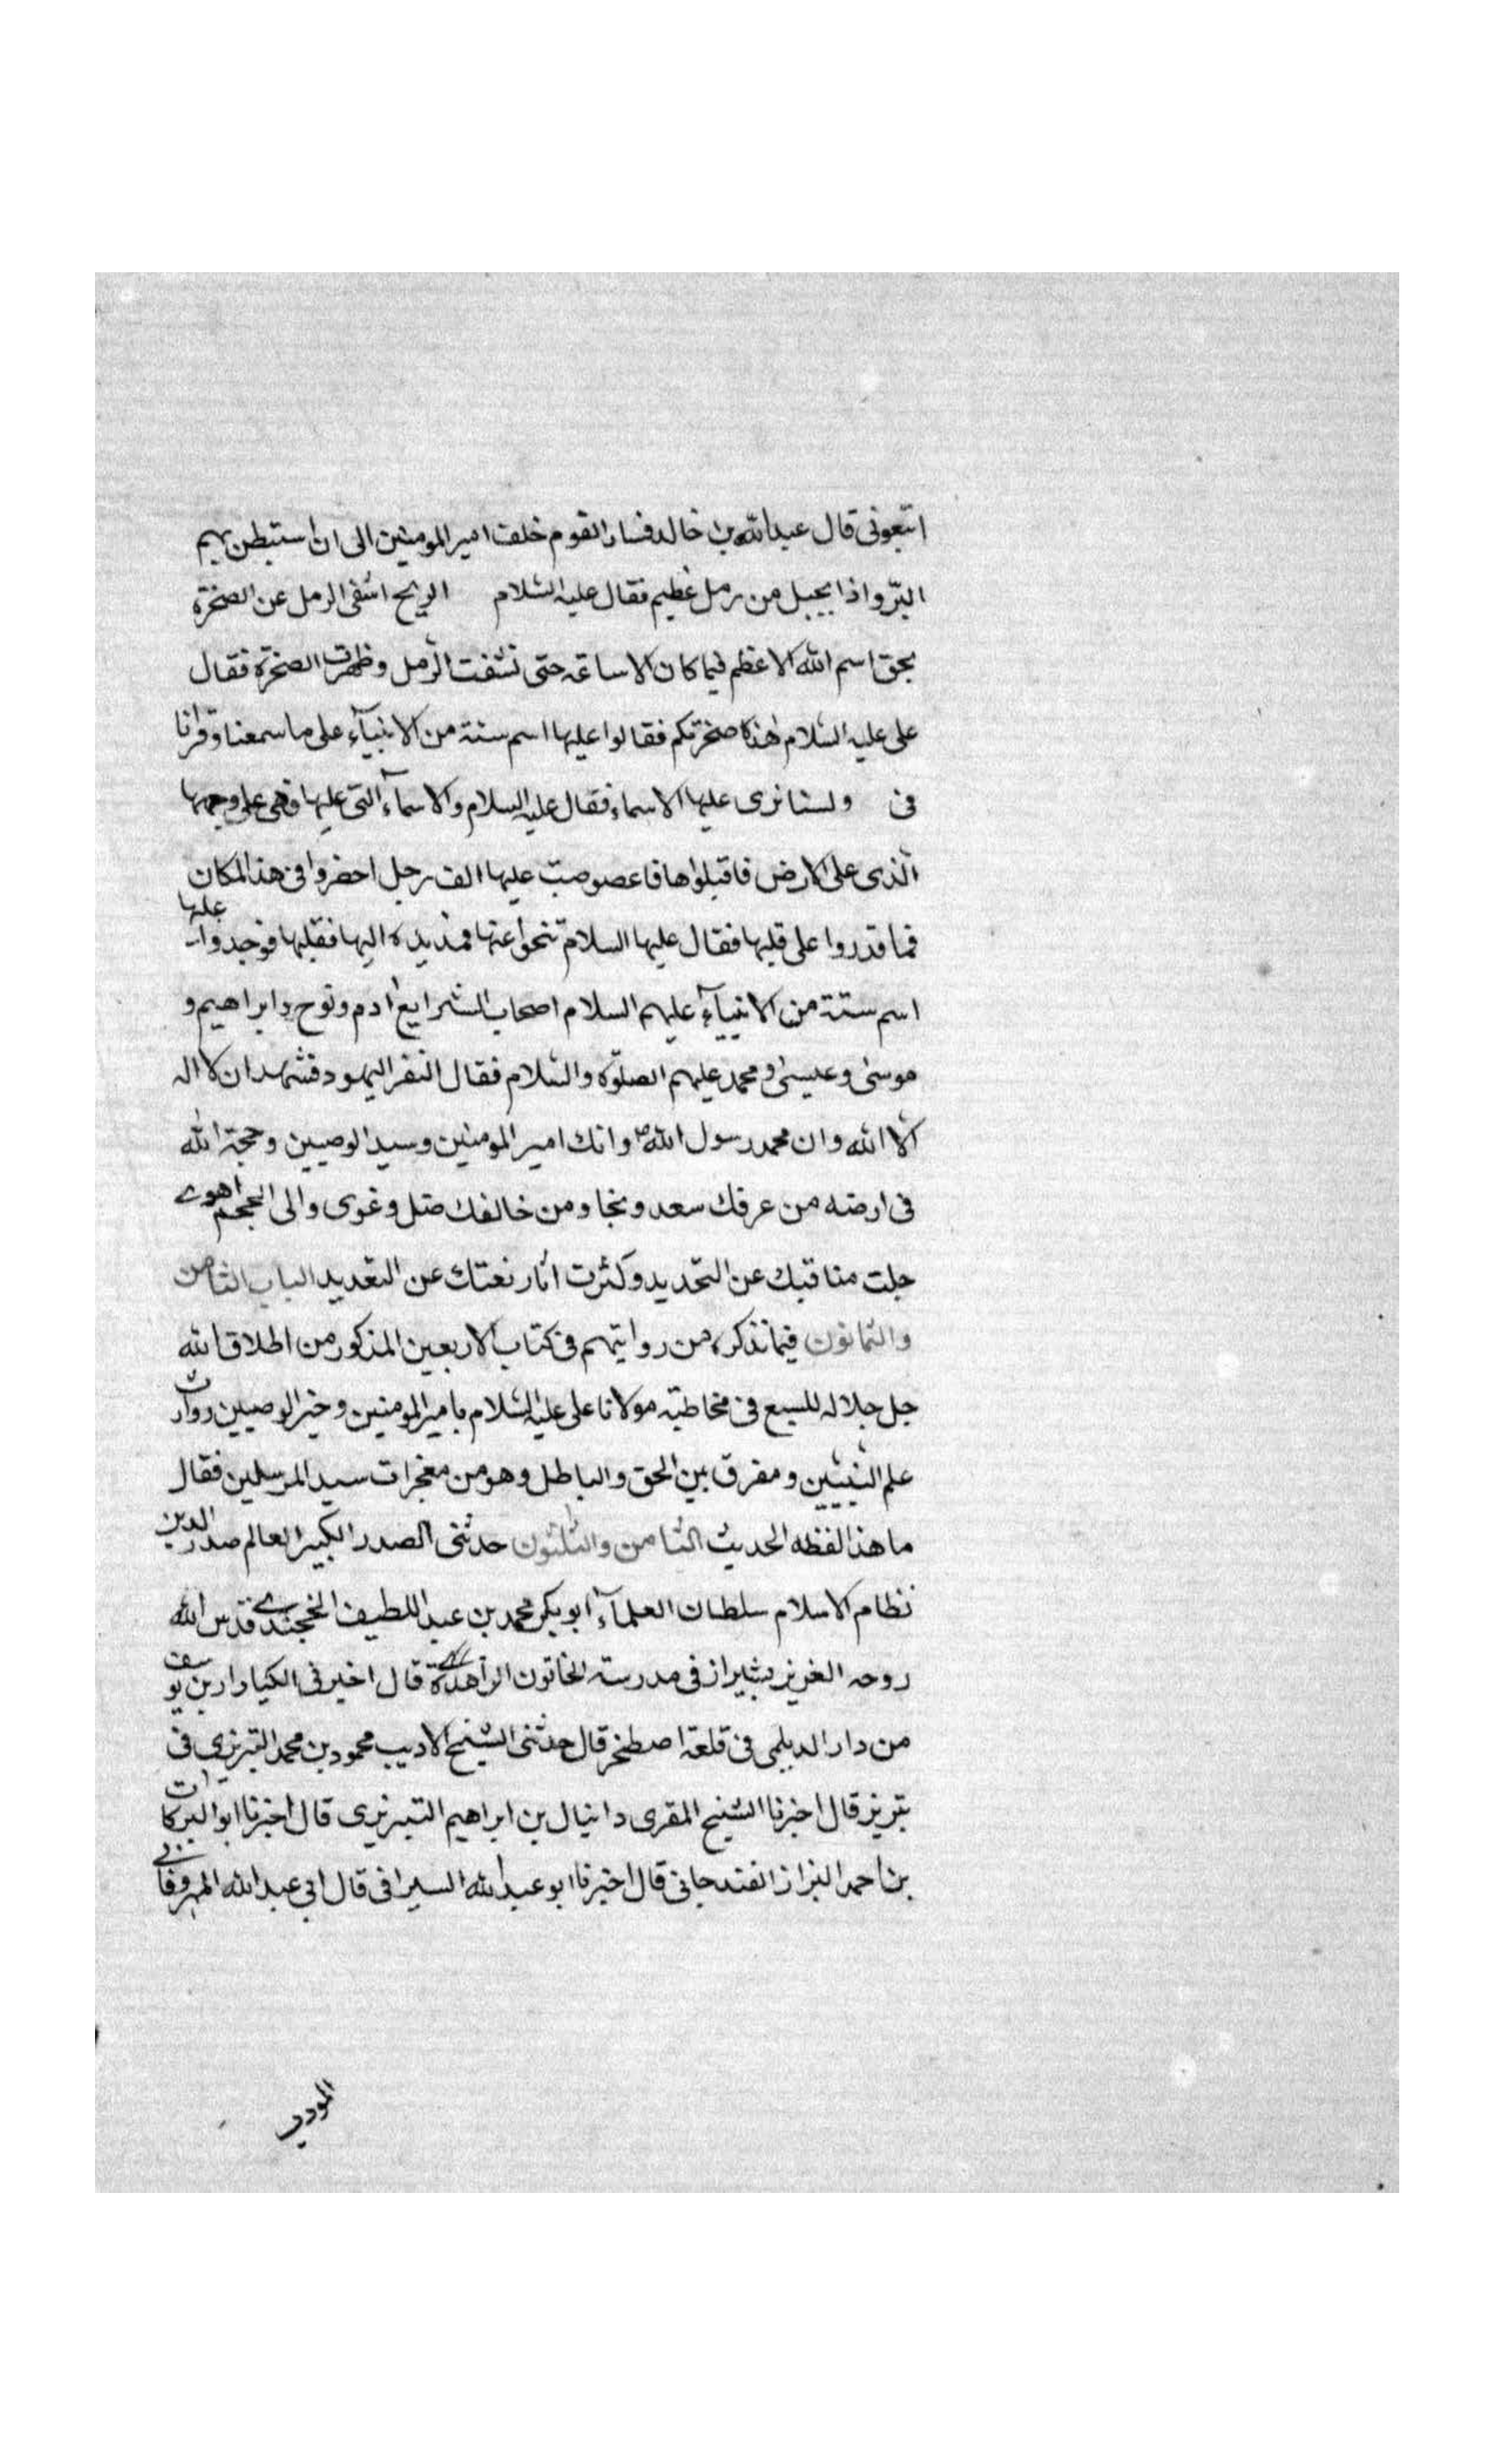 اتبعونى قال عبدالله بن خالد فسار القوم خلف امير المومنين الى ان استبطن بهم
البرّ واذا بجبل من رمل عظيم فقال عليه السلام الريح انسفى الرمل عن الصخرة
بحق اسم الله الاعظم فما كان الا ساعة حتى نشفت الرمل وظهرت الصخرة فقال
على عليه السلام هذه صخرتكم فقالوا عليها اسم ستة من الانبيآء على ما سمعنا وقرانا
فى ولسنا نرى عليها الاسماء فقال عليه السلام والاسمآء التى عليها وهى على وجهها
الذى على الارض فاقبلوها فاعصوصب عليها الف رجل احضروا فى هذا المكان
فما قدروا على قلبها فقال عليها السلام تنحوا عنها فمد يده اليها فقلبها فوجدوا عليها
اسم ستة من الانبيآء عليهم السلام اصحاب الشرايع ادم ونوح وابراهيم و
موسى وعيسى ومحمد عليهم الصلوة والسلام فقال النفر اليهود فشهد ان لا اله
الا الله وان محمد رسول الله ص وانك امير المومنين وسيد الوصيين وحجة الله
فى ارضه من عرفك سعد ونجا ومن خالفك ضل وغوى والى الجحيم اهوى
جلت مناقبك عن التحديد وكثرت اثار نعتك عن التعديد الباب الثامن
والثمانون فيما نذكره من روايتهم فى كتاب الاربعين المذكور من اطلاق الله
جل جلاله للسبع فى مخاطبة مولانا على عليه السلام بامير المومنين وخير الوصيين ووارث
علم النبيين ومفرق بين الحق والباطل وهو من معجزات سيد المرسلين فقال
ما هذا لفظه الحديث الثامن والثلثون حدثنى الصدر الكبير العالم صدر الدين
نظام الاسلام سلطان العلمآء ابو بكر محمد بن عبد اللطيف الخجندى قدس الله
روحه العزيز بشيراز فى مدرسة الخاتون الزاهدة قال اخبرنى الكيادار بن يوسف
من دار الديلمى فى قلعة اصطخر قال حدثنى الشيخ الاديب محمود بن محمد التبريزى فى
تبريز قال اخبرنا الشيخ المقرى دانيال بن ابراهيم التبريزى قال اخبرنا ابو البركات
بن احمد البزاز الفندجانى قال اخبرنا ابو عبد الله السيرافى قال ابى عبد الله المهروقانى
المودب